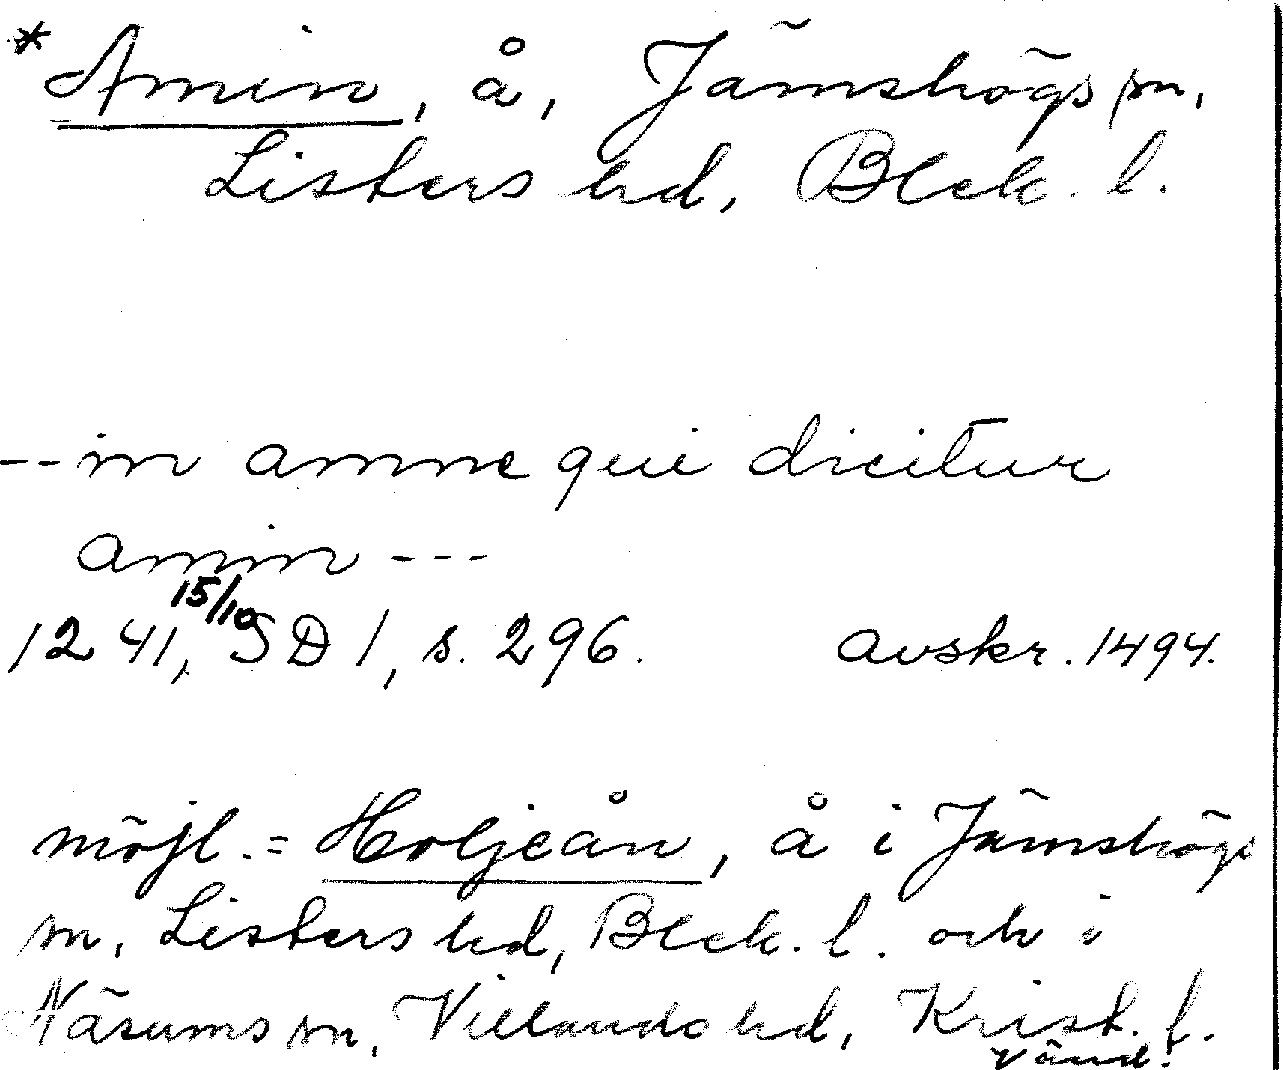 * Amin, å, Jämshögs sn,
Listers hd, Blek. l.
-- in amne qui dicitur
amin ---
1241, 15/10 SD 1, s. 296. avskr. 1494.
möjl. = Holjeån, å i Jämshögs
sn, Listers hd, Blek. l. och i
Näsums sn, Villands hd, Krist. l.
vänd!